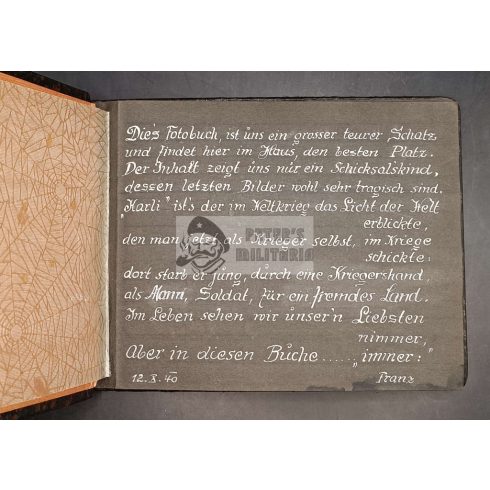 Die's Fotobuch, ist uns ein grosser teurer Schatz
und findet hier im Haus, den besten Platz.
Der Inhalt zeigt uns nur ein Schicksalskind,
dessen letzten Bilder wohl sehr tragisch sind.
"Karli" ist's der im Weltkrieg das Licht der Welt
erblickte,
den man jetzt als Krieger selbst, im Kriege
schickte:
dort starb er jung, durch eine Kriegershand,
als Mann, Soldat, für ein fremdes Land.
Im Leben sehen wir unser'n Liebsten
nimmer,
Aber in diesen Buche...... "immer:"
12.X.40 Franz
PETER'S
MILITARIA